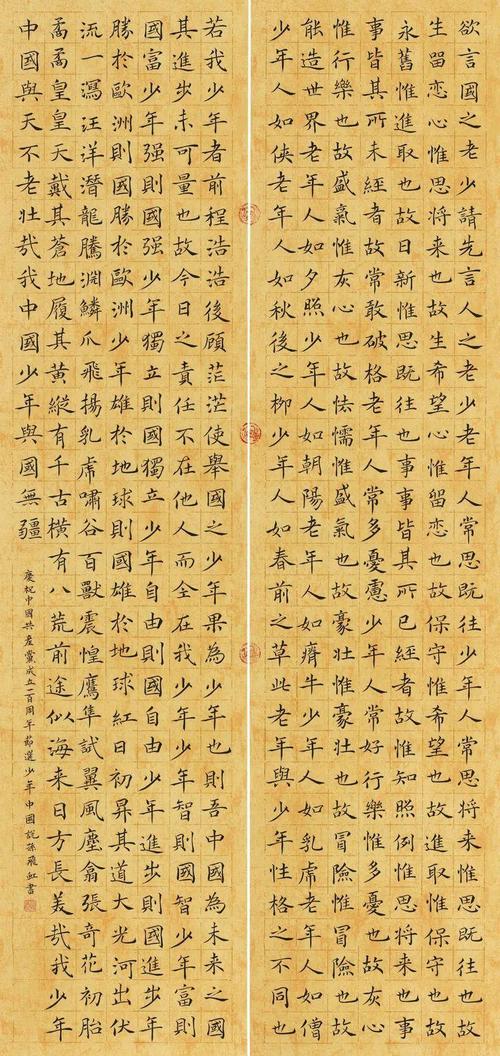 欲言國之老少請先言人之老少老年人常思既往少年人常思將來惟思既往也故
生留戀心惟思將来也故生希望心惟留戀也故保守惟希望也故進取惟保守也故
永舊惟進取也故日新惟思既往也事事皆其所已經者故惟知照例惟思將来也事
事皆其所未經者故常敢破格老年人常多憂慮少年人常好行樂惟多憂也故灰心
惟行樂也故盛氣惟灰心也故怯懦惟盛氣也故豪壮惟豪壮也故冒險惟冒險也故
能造世界老年人如夕照少年人如朝陽老年人如瘠牛少年人如乳虎老年人如僧
少年人如俠老年人如秋後之柳少年人如春前之草此老年與少年性格之不同也
若我少年者前程浩浩後顧茫茫使舉國之少年果為少年也則吾中國為未来之國
其進步未可量也故今日之責任不在他人而全在我少年少年智則國智少年富則
國富少年强則國强少年獨立則國獨立少年自由則國自由少年進步則國進步少年
勝於歐洲則國勝於歐洲少年雄於地球則國雄於地球紅日初昇其道大光河出伏
流一瀉汪洋潛龍騰淵鱗爪飛揚乳虎嘯谷百獸震惶鷹隼試翼風塵翕張奇花初胎
矞矞皇皇天戴其蒼地履其黃縱有千古橫有八荒前途似海来日方長美哉我少年
中國與天不老壮哉我中國少年與國無疆
慶祝中國共產黨成立一百周年節選少年中國說孫飛虹書